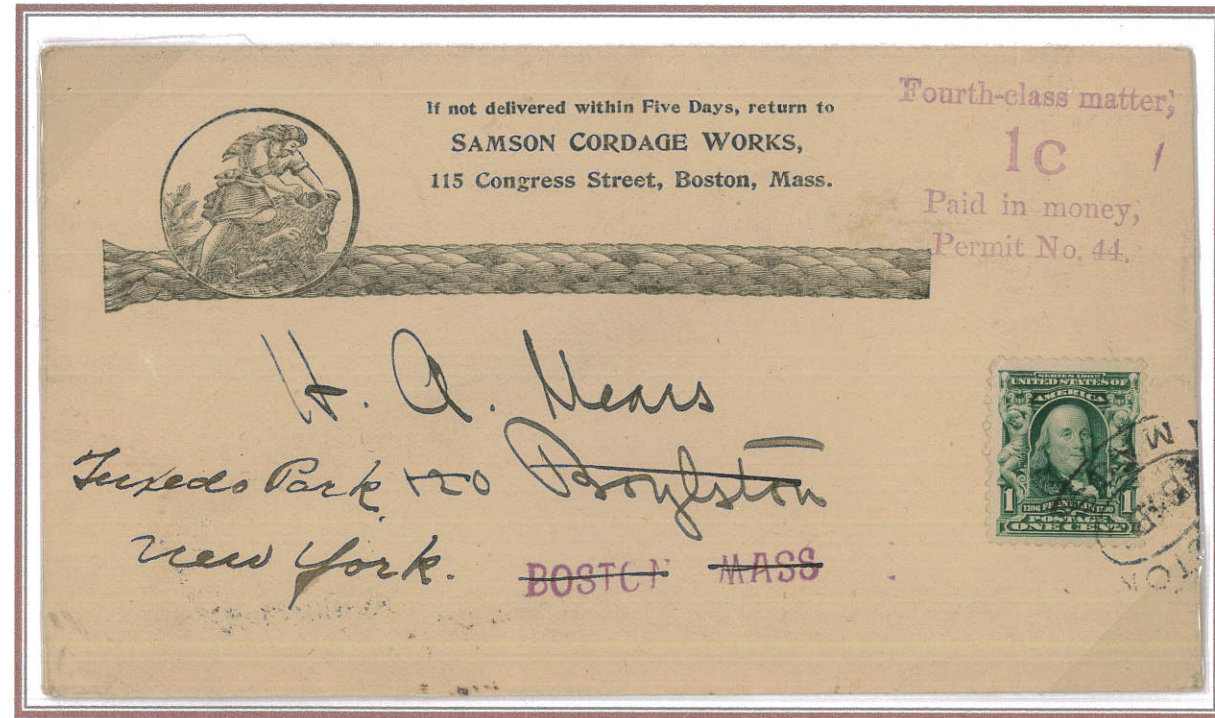 If not delivered within Five Days, return to
SAMSON CORDAGE WORKS,
115 Congress Street, Boston, Mass.
Fourth-class matter,
1c
Paid in money,
Permit No. 44.
H. A. Mears
Tuxedo Park 120 Boylston
New York. BOSTON MASS
SERIES 1902
UNITED STATES OF
AMERICA
1706 FRANKLIN 1790
1 POSTAGE 1
ONE CENT